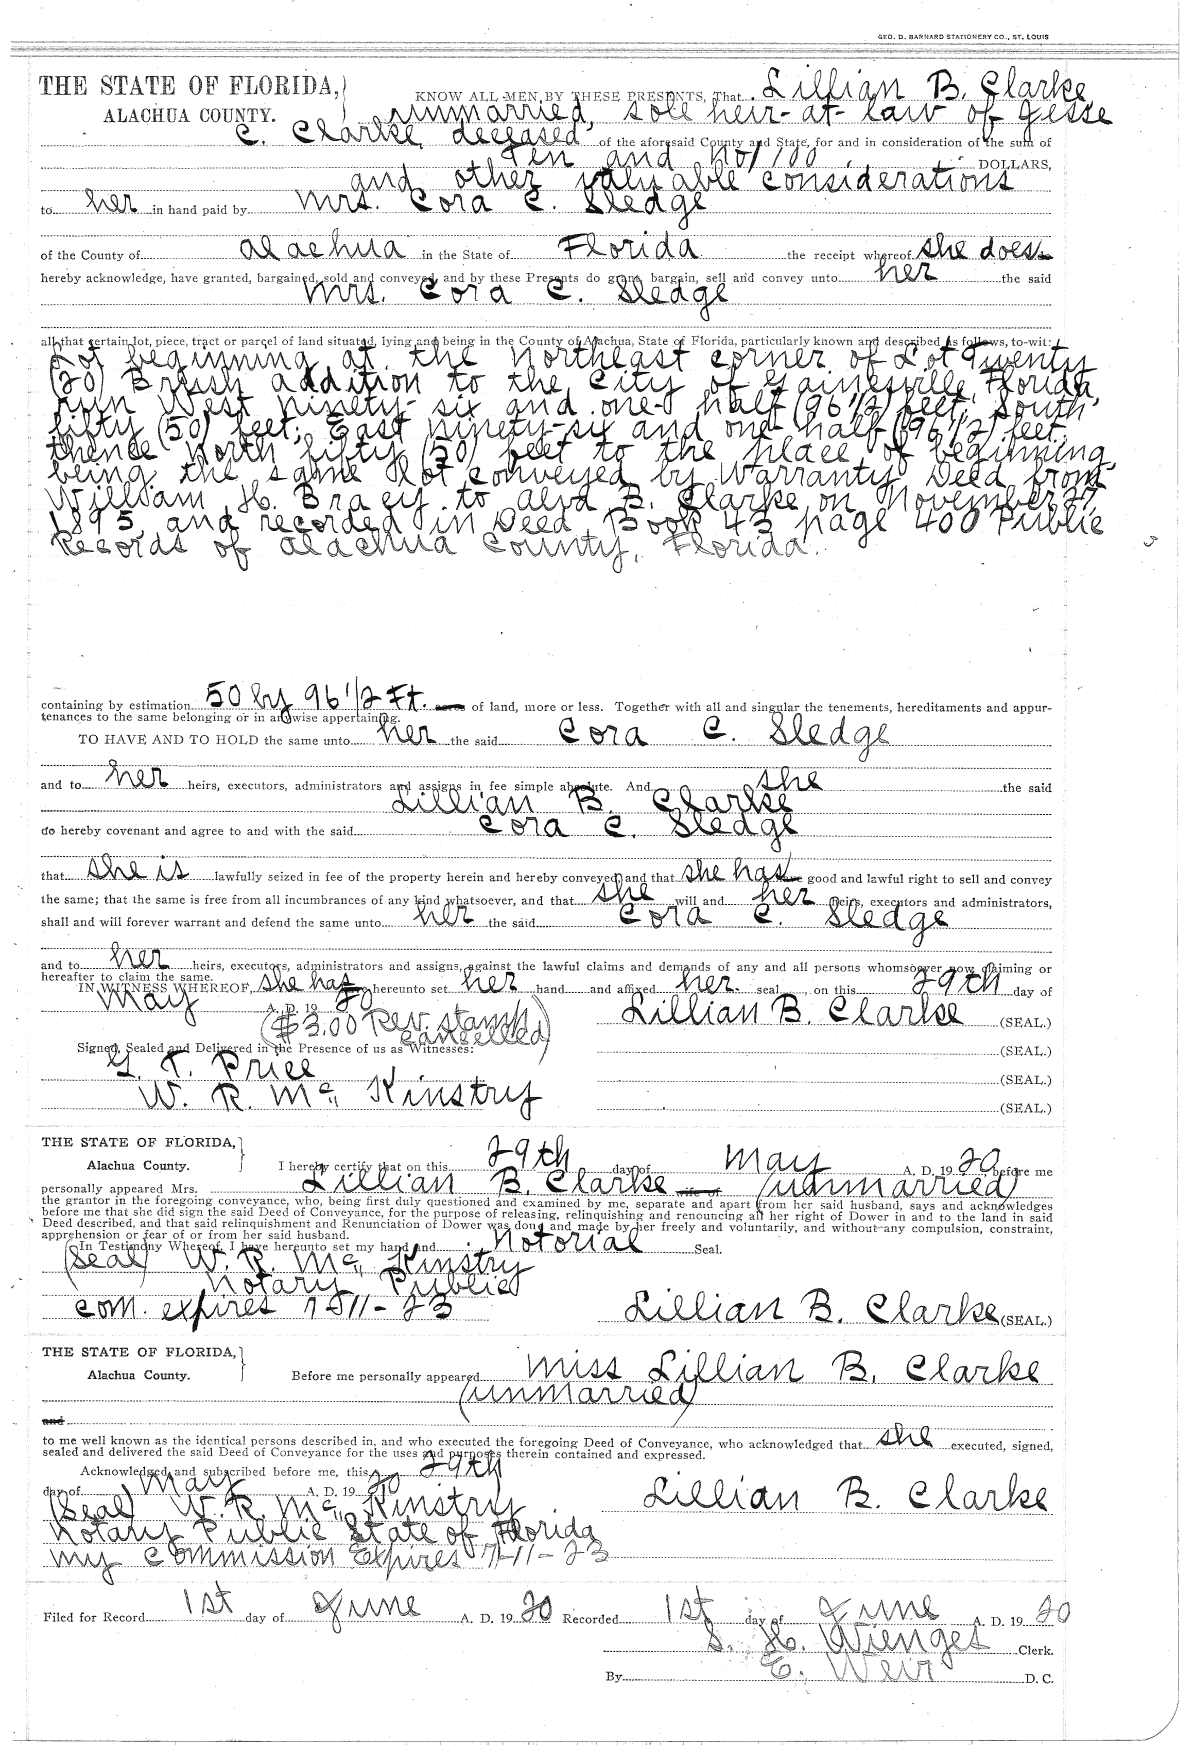 GEO. D. BARNARD STATIONERY CO., ST. LOUIS
THE STATE OF FLORIDA,
ALACHUA COUNTY.
KNOW ALL MEN BY THESE PRESENTS, That Lillian B. Clarke
unmarried, sole heir-at-law of Jesse
C. Clarke, deceased, of the aforesaid County and State, for and in consideration of the sum of
Ten and no/100 DOLLARS,
and other valuable considerations
to her in hand paid by Mrs. Cora C. Sledge
of the County of Alachua in the State of Florida the receipt whereof she does
hereby acknowledge, have granted, bargained, sold and conveyed, and by these Presents do grant, bargain, sell and convey unto her the said
Mrs. Cora C. Sledge
all that certain lot, piece, tract or parcel of land situated, lying and being in the County of Alachua, State of Florida, particularly known and described as follows, to-wit:
Lot beginning at the Northeast corner of Lot Twenty
(20) Brush addition to the City of Gainesville, Florida,
run West ninety-six and one-half (96 1/2) feet, South
fifty (50) feet; East ninety-six and one half (96 1/2) feet,
thence North fifty (50) feet to the place of beginning,
being the same lot conveyed by Warranty Deed from
William H. Bracey to Alva B. Clarke on November 27
1895, and recorded in Deed Book 43 page 400 Public
Records of Alachua County, Florida.
containing by estimation 50 by 96 1/2 Ft. acres of land, more or less. Together with all and singular the tenements, hereditaments and appur-
tenances to the same belonging or in anywise appertaining.
TO HAVE AND TO HOLD the same unto her the said Cora C. Sledge
and to her heirs, executors, administrators and assigns in fee simple absolute. And she the said
Lillian B. Clarke
do hereby covenant and agree to and with the said Cora C. Sledge
that she is lawfully seized in fee of the property herein and hereby conveyed and that she has good and lawful right to sell and convey
the same; that the same is free from all incumbrances of any kind whatsoever, and that she will and her heirs, executors and administrators,
shall and will forever warrant and defend the same unto her the said Cora C. Sledge
and to her heirs, executors, administrators and assigns, against the lawful claims and demands of any and all persons whomsoever now claiming or
hereafter to claim the same.
IN WITNESS WHEREOF, she has hereunto set her hand and affixed her seal, on this 29th day of
May A. D. 19 20 Lillian B. Clarke (SEAL.)
($3.00 Rev. stamp
cancelled)
Signed, Sealed and Delivered in the Presence of us as Witnesses: (SEAL.)
G. T. Price (SEAL.)
W. R. Mc Kinstry (SEAL.)
THE STATE OF FLORIDA,
Alachua County.
I hereby certify that on this 29th day of May A. D. 19 20 before me
personally appeared Mrs. Lillian B. Clarke (unmarried)
the grantor in the foregoing conveyance, who, being first duly questioned and examined by me, separate and apart from her said husband, says and acknowledges
before me that she did sign the said Deed of Conveyance, for the purpose of releasing, relinquishing and renouncing all her right of Dower in and to the land in said
Deed described, and that said relinquishment and Renunciation of Dower was done and made by her freely and voluntarily, and without any compulsion, constraint,
apprehension or fear of or from her said husband.
In Testimony Whereof, I have hereunto set my hand and Notorial Seal.
(Seal) W. R. Mc Kinstry
Notary Public
com. expires 7-11-23 Lillian B. Clarke (SEAL.)
THE STATE OF FLORIDA,
Alachua County.
Before me personally appeared Miss Lillian B. Clarke
(unmarried)
and
to me well known as the identical persons described in, and who executed the foregoing Deed of Conveyance, who acknowledged that she executed, signed,
sealed and delivered the said Deed of Conveyance for the uses and purposes therein contained and expressed.
Acknowledged and subscribed before me, this 29th
day of May A. D. 19 20
(Seal) W. R. Mc Kinstry Lillian B. Clarke
Notary Public State of Florida
My Commission Expires 7-11-23
Filed for Record 1st day of June A. D. 19 20 Recorded 1st day of June A. D. 19 20
S. H. Wienges Clerk.
By E. Weir D. C.